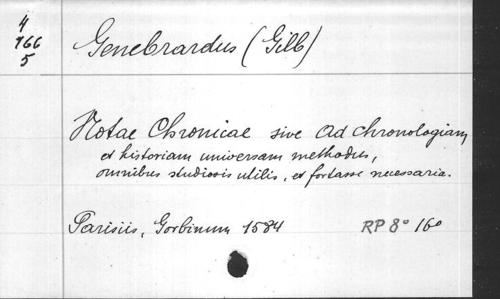 4
166
5
Genebrardus (Gilb)
Notae Chronicae sive ad chronologiam
et historiam universam methodus,
omnibus studiosis utilis, et fortasse necessaria.
Parisiis, Gorbinum 1584 RP 8° 160